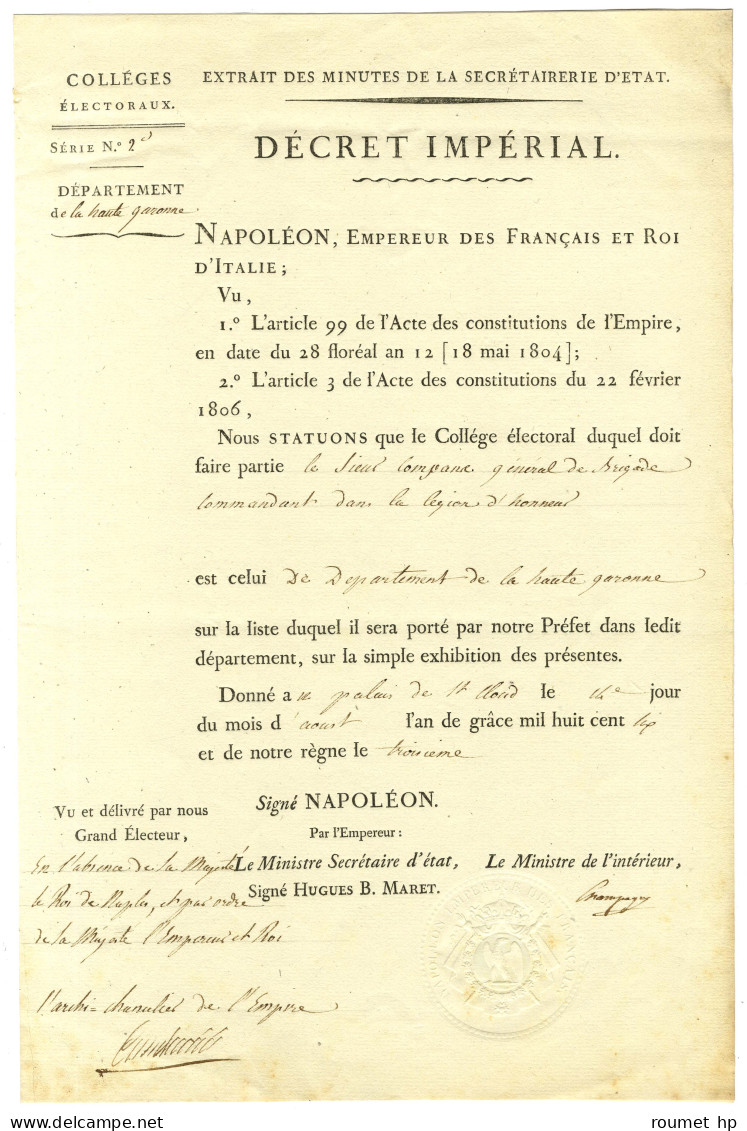 COLLÉGES
ÉLECTORAUX.
SÉRIE N.º 2
DÉPARTEMENT
de la haute garonne
EXTRAIT DES MINUTES DE LA SECRÉTAIRERIE D'ETAT.
DÉCRET IMPÉRIAL.
NAPOLÉON, EMPEREUR DES FRANÇAIS ET ROI
D'ITALIE ;
Vu ,
1.º L'article 99 de l'Acte des constitutions de l'Empire,
en date du 28 floréal an 12 [18 mai 1804];
2.º L'article 3 de l'Acte des constitutions du 22 février
1806,
Nous STATUONS que le Collége électoral duquel doit
faire partie le Sieur Compane général de Brigade
Commandant dans la légion d'honneur
est celui De Departement de la haute garonne
sur la liste duquel il sera porté par notre Préfet dans ledit
département, sur la simple exhibition des présentes.
Donné a palais de St Cloud le jour
du mois d'aoust l'an de grâce mil huit cent six
et de notre règne le troisieme
Signé NAPOLÉON.
Par l'Empereur :
Le Ministre Secrétaire d'état,
Signé HUGUES B. MARET.
Le Ministre de l'intérieur,
Champagny
VU et délivré par nous
Grand Électeur,
En l'absence de Sa Majesté
le Roi de Naples, et par ordre
de Sa Majesté l'Empereur et Roi
l'archi-chancelier de l'Empire
Cambacérès
roumet hp